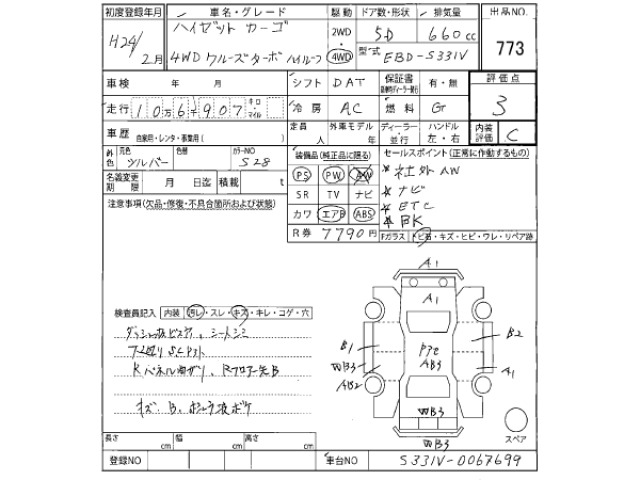 初度登録年月 車名・グレード 駆動 ドア数・形状 排気量 出品NO.
H24/2月 ハイゼット カーゴ 2WD 5D 660cc 773
4WD クルーズターボ ハイルーフ 4WD 型式 EBD-S331V
車検 年 月 シフト DAT 保証書 有・無 評価点
走行 10万6千907 キロ マイル 冷房 AC 燃料 G 3
車歴 自家用・レンタ・事業用( ) 定員 人 外車モデル 年 ディーラー・並行 ハンドル 左・右 内装評価 C
外色 元色 シルバー 色替 カラーNO S28 装備品(純正品に限る) セールスポイント(正常に作動するもの)
名義変更期限 月 日迄 積載 t PS PW AW 社外AW
注意事項(欠品・修復・不具合箇所および状態) SR TV ナビ ナビ
ETC
カワ エアB ABS BK
R券 7790円 Fガラス 飛石・キズ・ヒビ・ワレ・リペア跡
A1
A1
検査員記入 内装 汚レ・スレ・キズ・キレ・コゲ・穴
、シートシミ
B1 B2
WB3 AB3 A1
AB2
WB3
WB3
スペア
長さ cm 幅 cm 高さ cm
登録NO 車台NO S331V-0067699